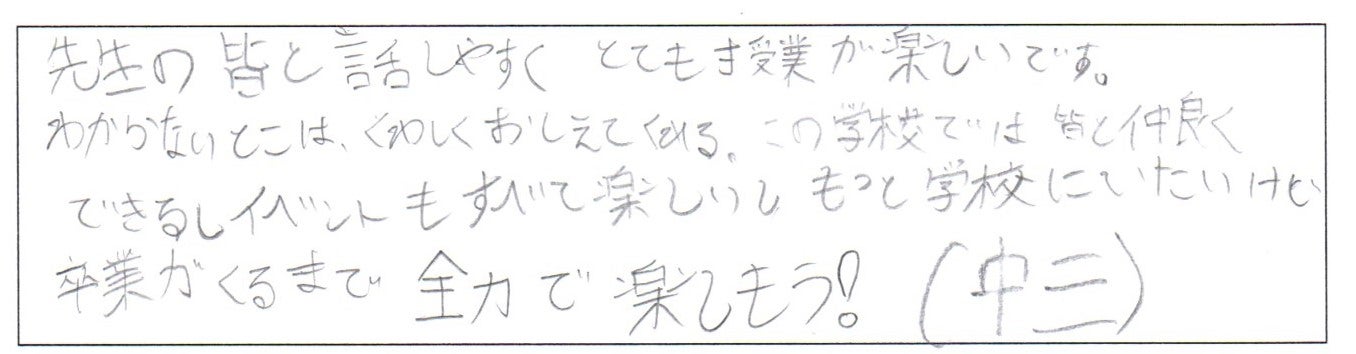 先生の皆と話しやすくとても授業が楽しいです。
わからないとこは、くわしくおしえてくれる。この学校では皆と仲良く
できるしイベントもすべて楽しいしもっと学校にいたいけど
卒業がくるまで全力で楽しもう!(中三)